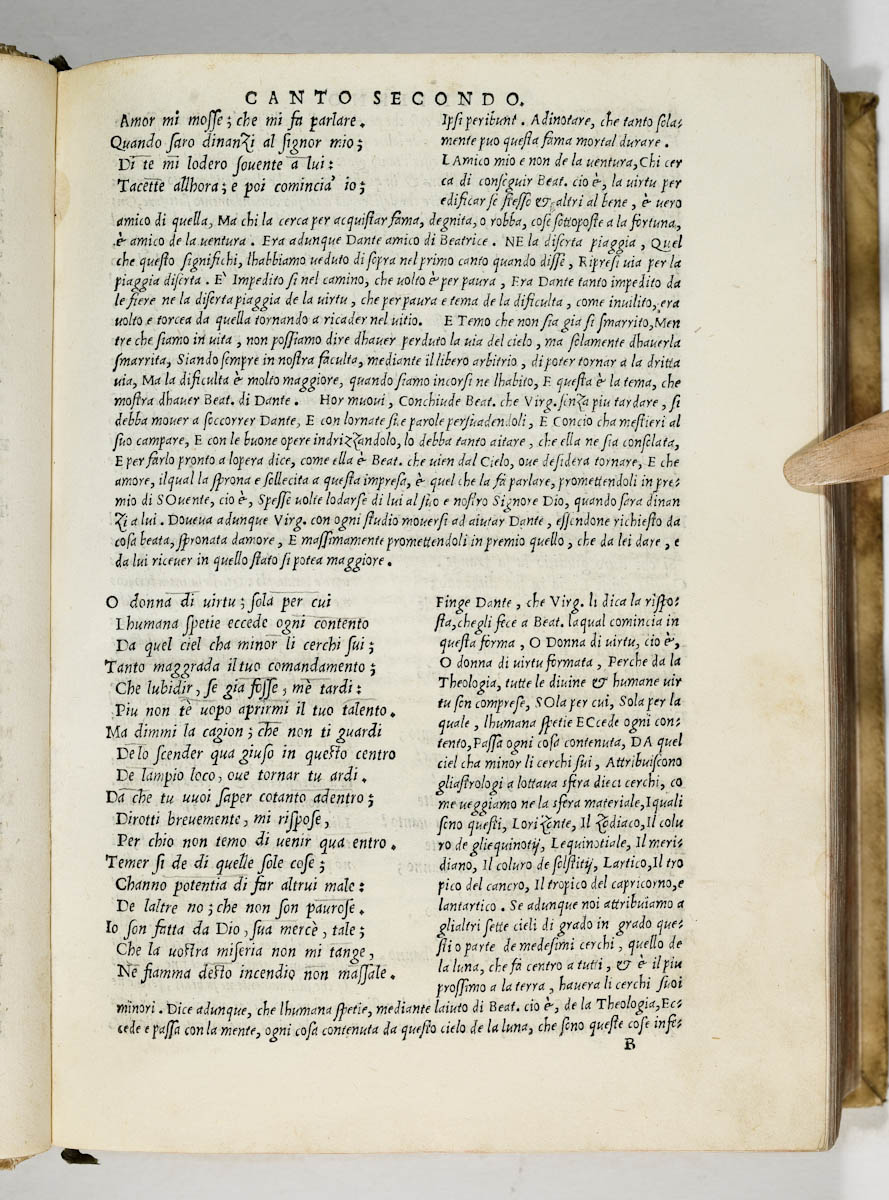 CANTO SECONDO.
Amor mi mosse; che mi fa parlare.
Quando saro dinanzi al signor mio;
Di te mi lodero sovente a lui:
Tacette allhora; e poi comincia' io;
Ipsi peribunt. Adinotare, che tanto sola-
mente puo questa fama mortal durare.
LAmico mio e non de la ventura, Chi cer
ca di conseguir Beat. cio è, la virtu per
edificar se stesso & altri al bene, è vero
amico di quella, Ma chi la cerca per acquistar fama, degnita, o robba, cose sottoposte a la fortuna,
è amico de la ventura. Era adunque Dante amico di Beatrice. NE la diserta piaggia, Quel
che questo significhi, lhabbiamo veduto di sopra nel primo canto quando disse, Ripresi via per la
piaggia diserta. E Impedito si nel camino, che volto è per paura, Era Dante tanto impedito da
le fiere ne la diserta piaggia de la virtu, che per paura e tema de la dificulta, come invilito, era
volto e torcea da quella tornando a ricader nel vitio. E Temo che non sia gia si smarrito, Men
tre che siamo in vita, non possiamo dire dhaver perduto la via del cielo, ma solamente dhaverla
smarrita, Siando sempre in nostra faculta, mediante il libero arbitrio, di poter tornar a la dritta
via, Ma la dificulta è molto maggiore, quando siamo incorsi ne lhabito, E questa è la tema, che
mostra dhaver Beat. di Dante. Hor muovi, Conchiude Beat. che Virg. senza piu tardare, si
debba mover a soccorrer Dante, E con lornate sue parole persuadendoli, E Concio cha mestieri al
suo campare, E con le buone opere indrizzandolo, lo debba tanto aitare, che ella ne sia consolata,
E per farlo pronto a lopera dice, come ella è Beat. che vien dal Cielo, ove desidera tornare, E che
amore, ilqual la sprona e sollecita a questa impresa, è quel che la fa parlare, promettendoli in pre-
mio di SOvente, cio è, Spesse volte lodarse di lui al suo e nostro Signore Dio, quando sara dinan
zi a lui. Doveva adunque Virg. con ogni studio moversi ad aiutar Dante, essendone richiesto da
cosa beata, spronata damore, E massimamente promettendoli in premio quello, che da lei dare, e
da lui ricever in quello stato si potea maggiore.
O donna di virtu; sola per cui
Lhumana spetie eccede ogni contento
Da quel ciel cha minor li cerchi sui;
Tanto maggrada il tuo comandamento;
Che lubidir, se gia fosse, mè tardi:
Piu non tè uopo aprirmi il tuo talento.
Ma dimmi la cagion; che non ti guardi
Delo scender qua giuso in questo centro
De lampio loco, ove tornar tu ardi.
Da che tu vuoi saper cotanto adentro;
Dirotti brevemente, mi rispose,
Per chio non temo di venir qua entro.
Temer si de di quelle sole cose;
Channo potentia di far altrui male:
De laltre no; che non son paurose.
Io son fatta da Dio, sua mercè, tale;
Che la vostra miseria non mi tange,
Ne fiamma desto incendio non massale.
Finge Dante, che Virg. li dica la rispo-
sta, chegli fece a Beat. laqual comincia in
questa forma, O Donna di virtu, cio è,
O donna di virtu formata, Perche da la
Theologia, tutte le divine & humane vir
tu son comprese, SOla per cui, Sola per la
quale, lhumana spetie ECcede ogni con-
tento, Passa ogni cosa contenuta, DA quel
ciel cha minor li cerchi sui, Attribuiscono
gliastrologi a lottava sfera dieci cerchi, co
me veggiamo ne la sfera materiale, Iquali
sono questi, Lorizonte, Il zodiaco, Il colu
ro de gliequinotij, Lequinotiale, Il meri-
diano, Il coluro de solstitij, Lartico, Il tro
pico del cancro, Il tropico del capricorno, e
lantartico. Se adunque noi attribuiamo a
glialtri sette cieli di grado in grado que-
sti o parte de medesimi cerchi, quello de
la luna, che fa centro a tutti, & è il piu
prossimo a la terra, havera li cerchi suoi
minori. Dice adunque, che lhumana spetie, mediante laiuto di Beat. cio è, de la Theologia, Ec-
cede e passa con la mente, ogni cosa contenuta da questo cielo de la luna, che sono queste cose infe-
B